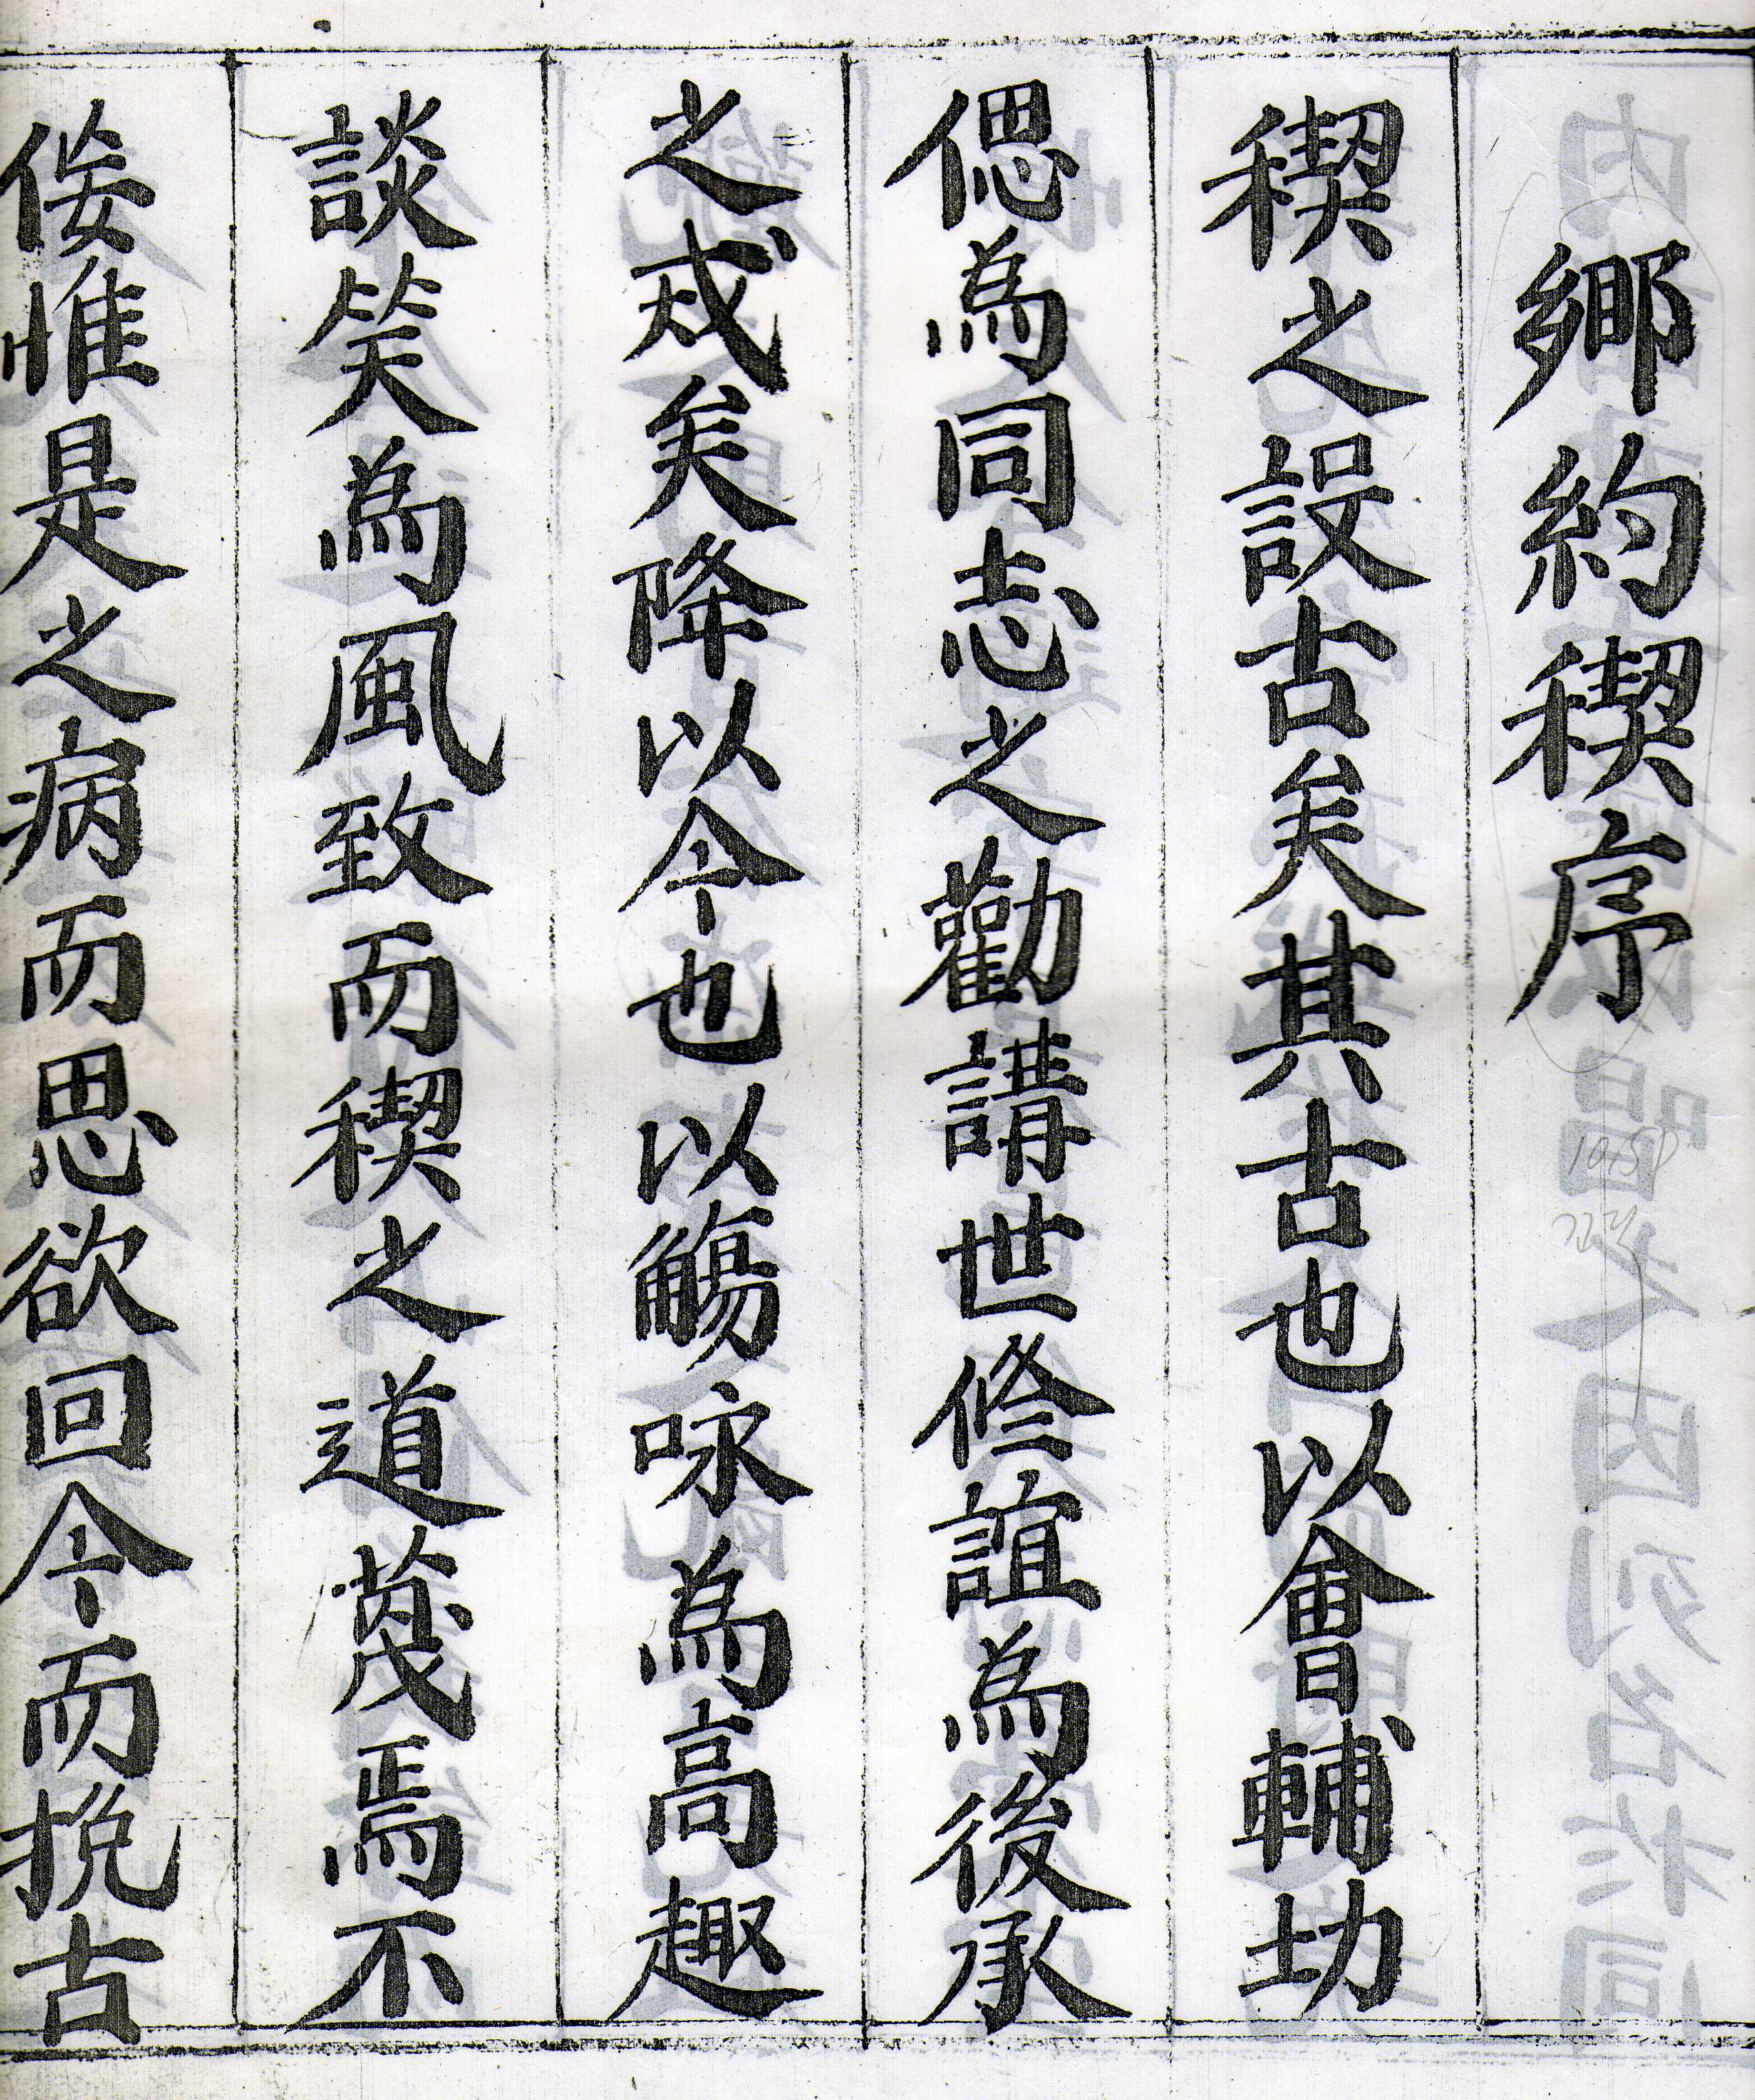 鄉約稧序
稧之設古矣其古也以會輔切
偲為同志之勸講世修誼為後承
之戒矣降以今也以觴咏為高趣
談笑為風致而稧之道蔑焉不
佞惟是之病而思欲回今而挽古